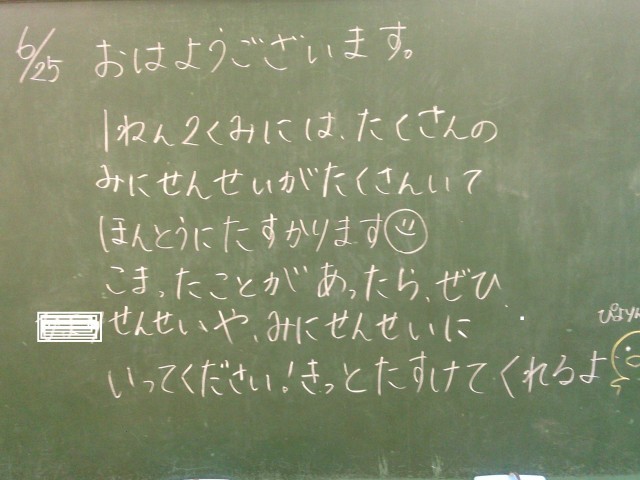 6/25 おはようございます。
1ねん2くみには、たくさんの
みにせんせいがたくさんいて
ほんとうにたすかります
こまったことがあったら、ぜひ
せんせいや、みにせんせいに
いってください!きっとたすけてくれるよ
ぴよりん